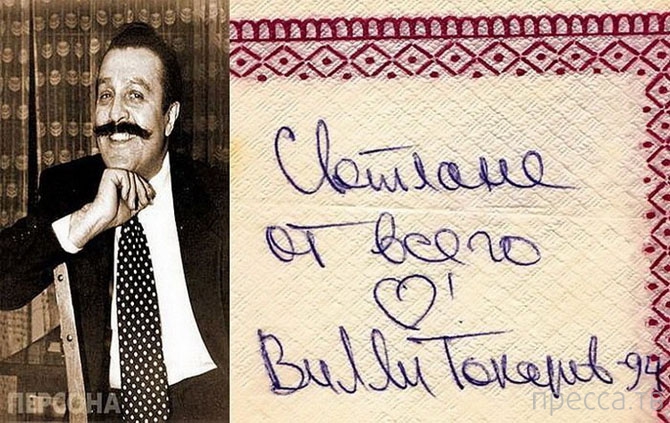 Светлане
от всего
♡!
Вилли Токарев-94
ПЕРСОНА
пресса.tv